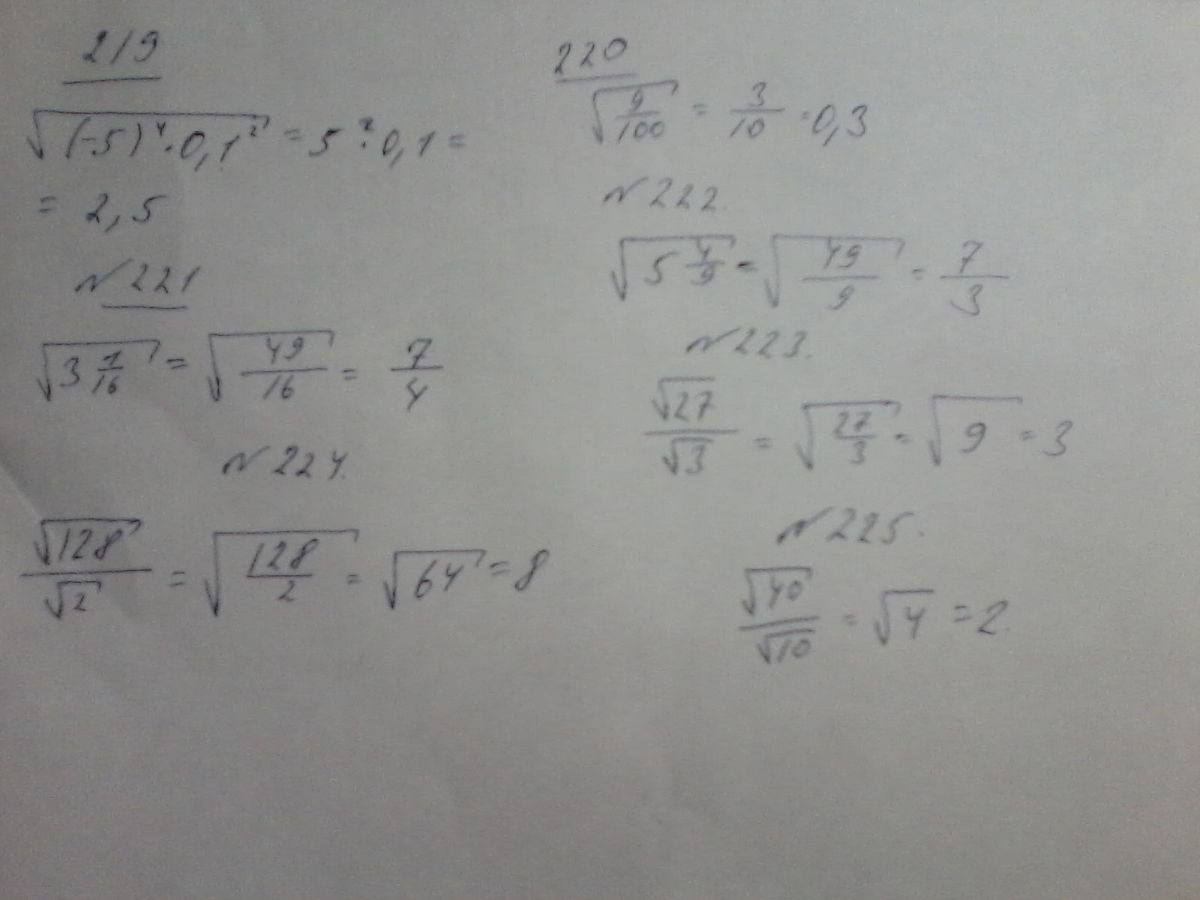 219
√((-5)⁴·0,1²) = 5²·0,1 =
= 2,5
N 221
√(3 1/16) = √(49/16) = 7/4
N 224.
√128/√2 = √(128/2) = √64 = 8
220
√(9/100) = 3/10 = 0,3
N 222.
√(5 4/9) = √(49/9) = 7/3
N 223.
√27/√3 = √(27/3) = √9 = 3
N 225.
√40/√10 = √4 = 2.